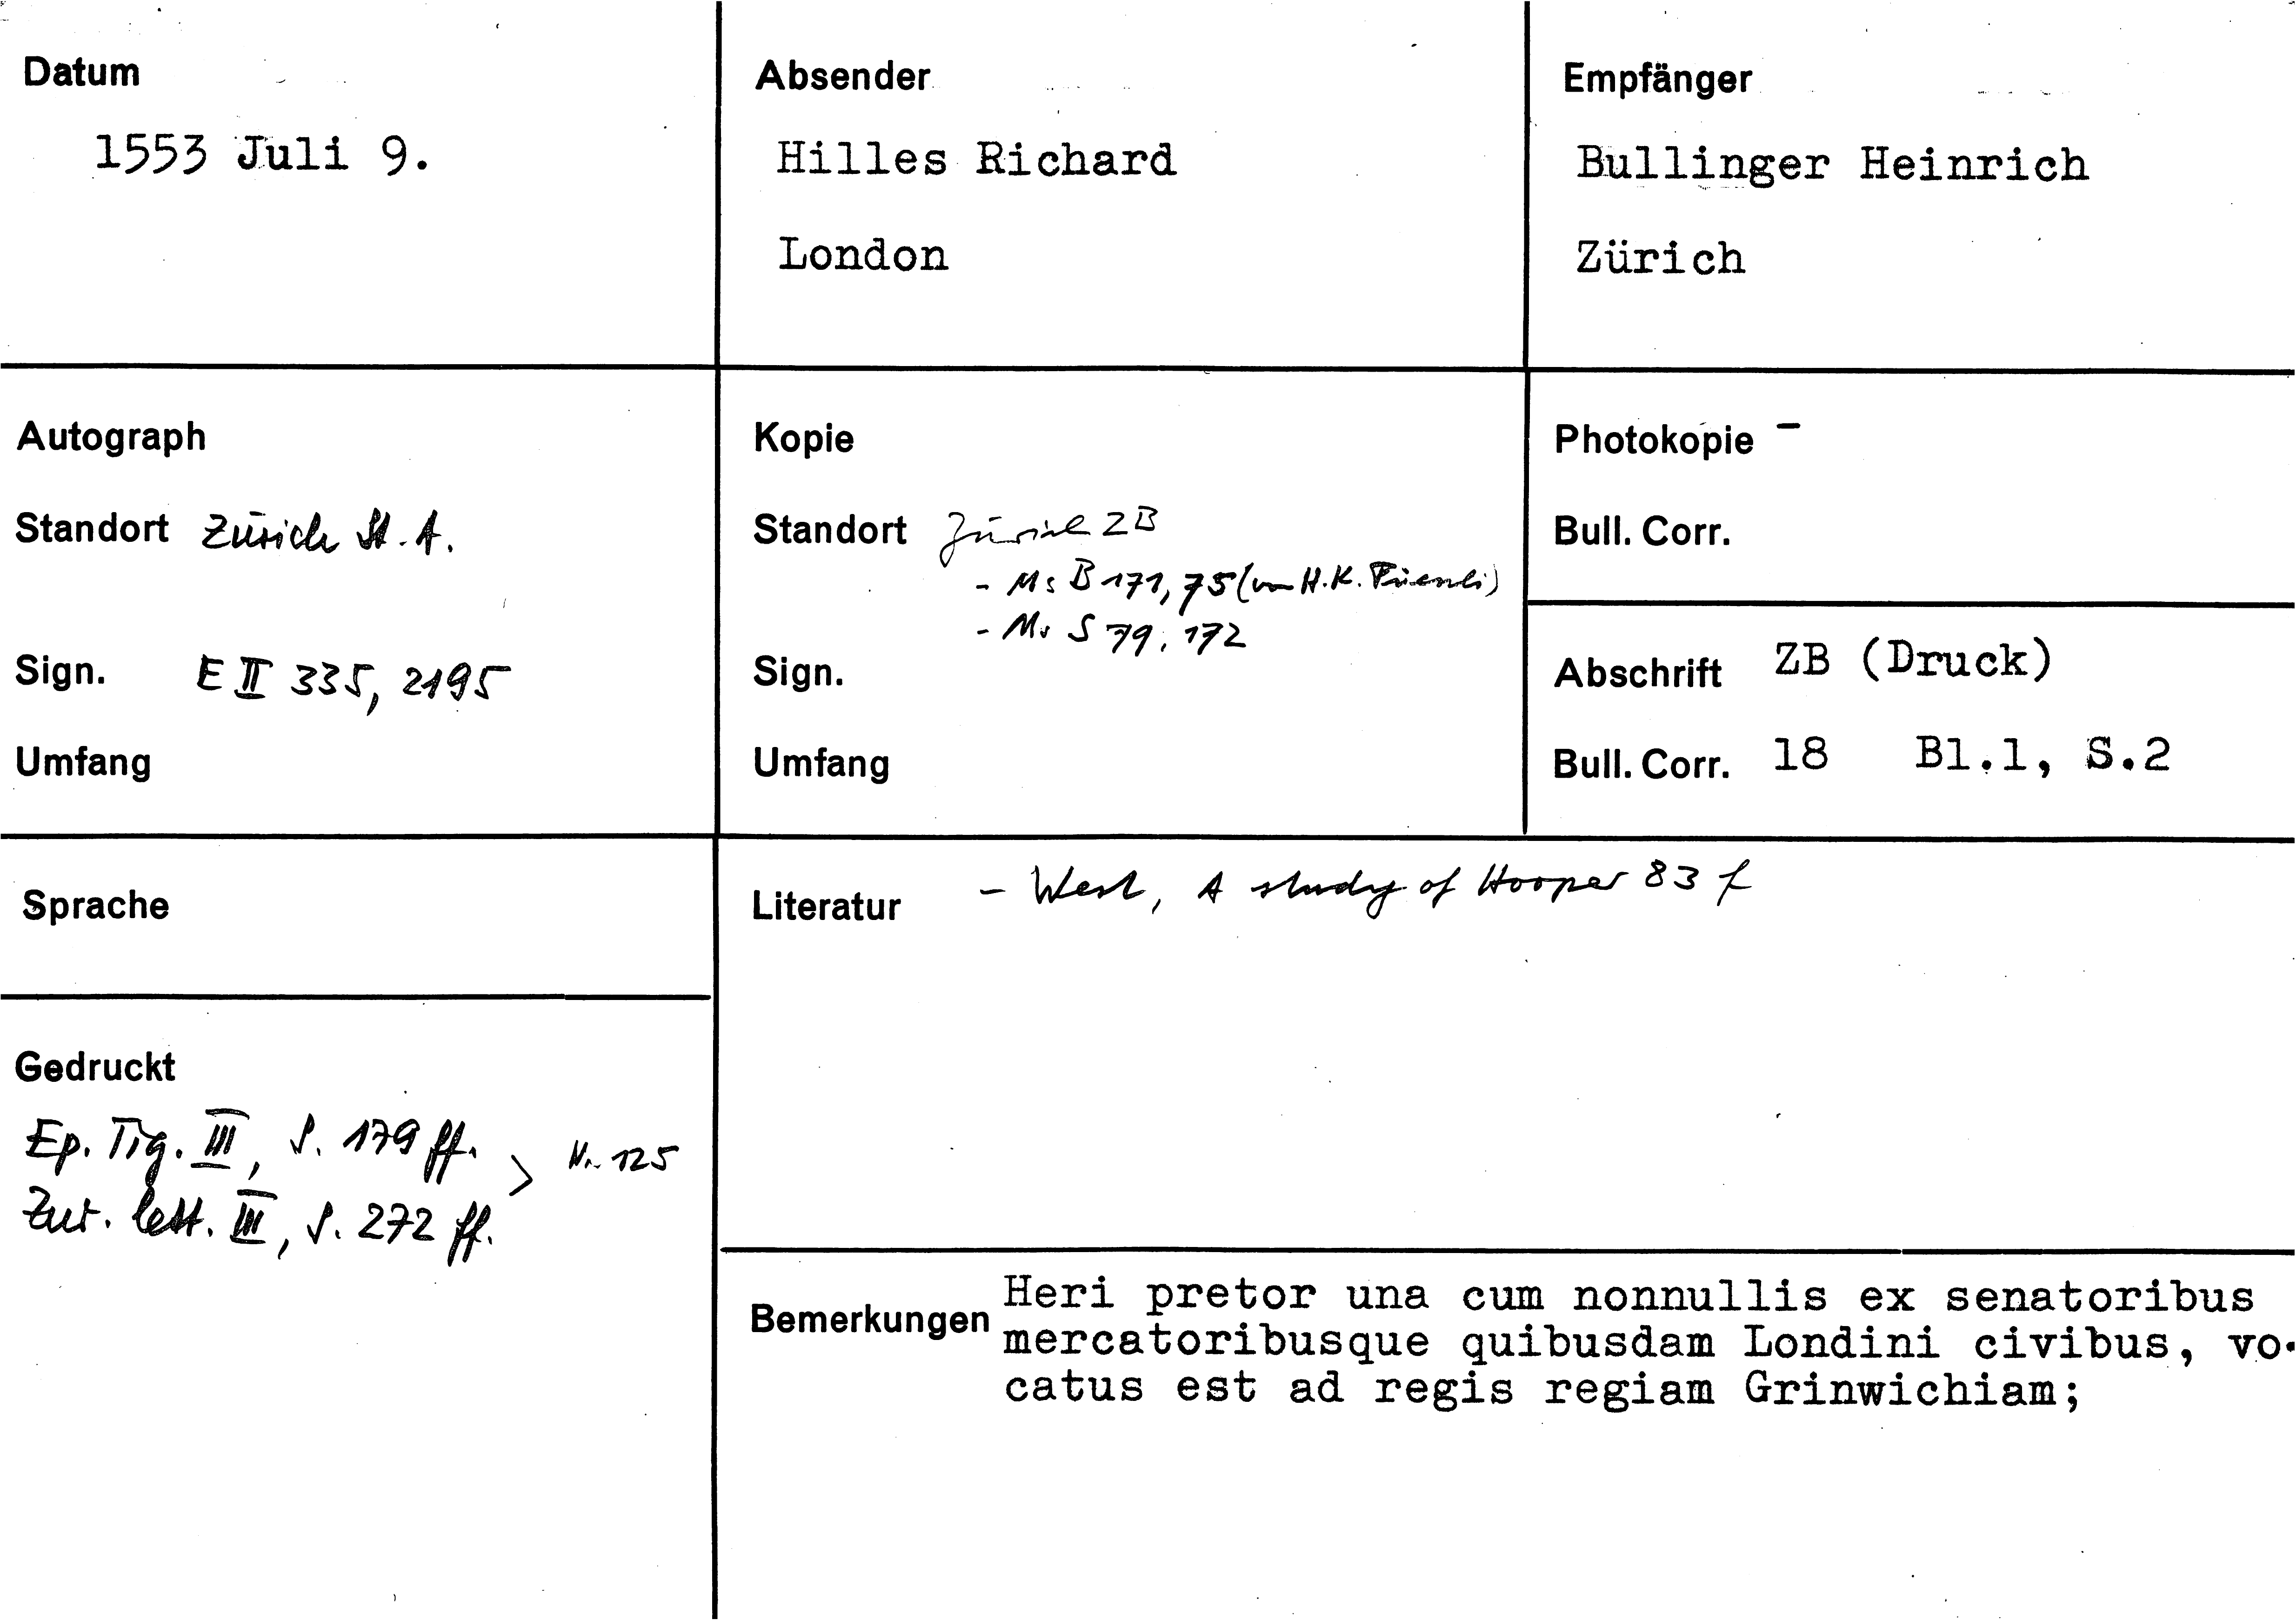 Datum
1553 Juli 9.
Absender
Hilles Richard
London
Empfänger
Bullinger Heinrich
Zürich
Autograph
Standort Zürich St. A.
Sign. E II 335, 2195
Umfang
Kopie
Standort Zürich ZB
- Ms B 171, 75 (von H.K. Füensli)
- Ms S 79, 172
Sign.
Umfang
Photokopie -
Bull. Corr.
Abschrift ZB (Druck)
Bull. Corr. 18 Bl.1, S.2
Sprache
Gedruckt
Ep. Tig. III, S. 179 ff. > Nr. 125
Zur. lett. III, S. 272 ff.
Literatur - West, A study of Hooper 83 f
Bemerkungen Heri pretor una cum nonnullis ex senatoribus
mercatoribusque quibusdam Londini civibus, vo-
catus est ad regis regiam Grinwichiam;